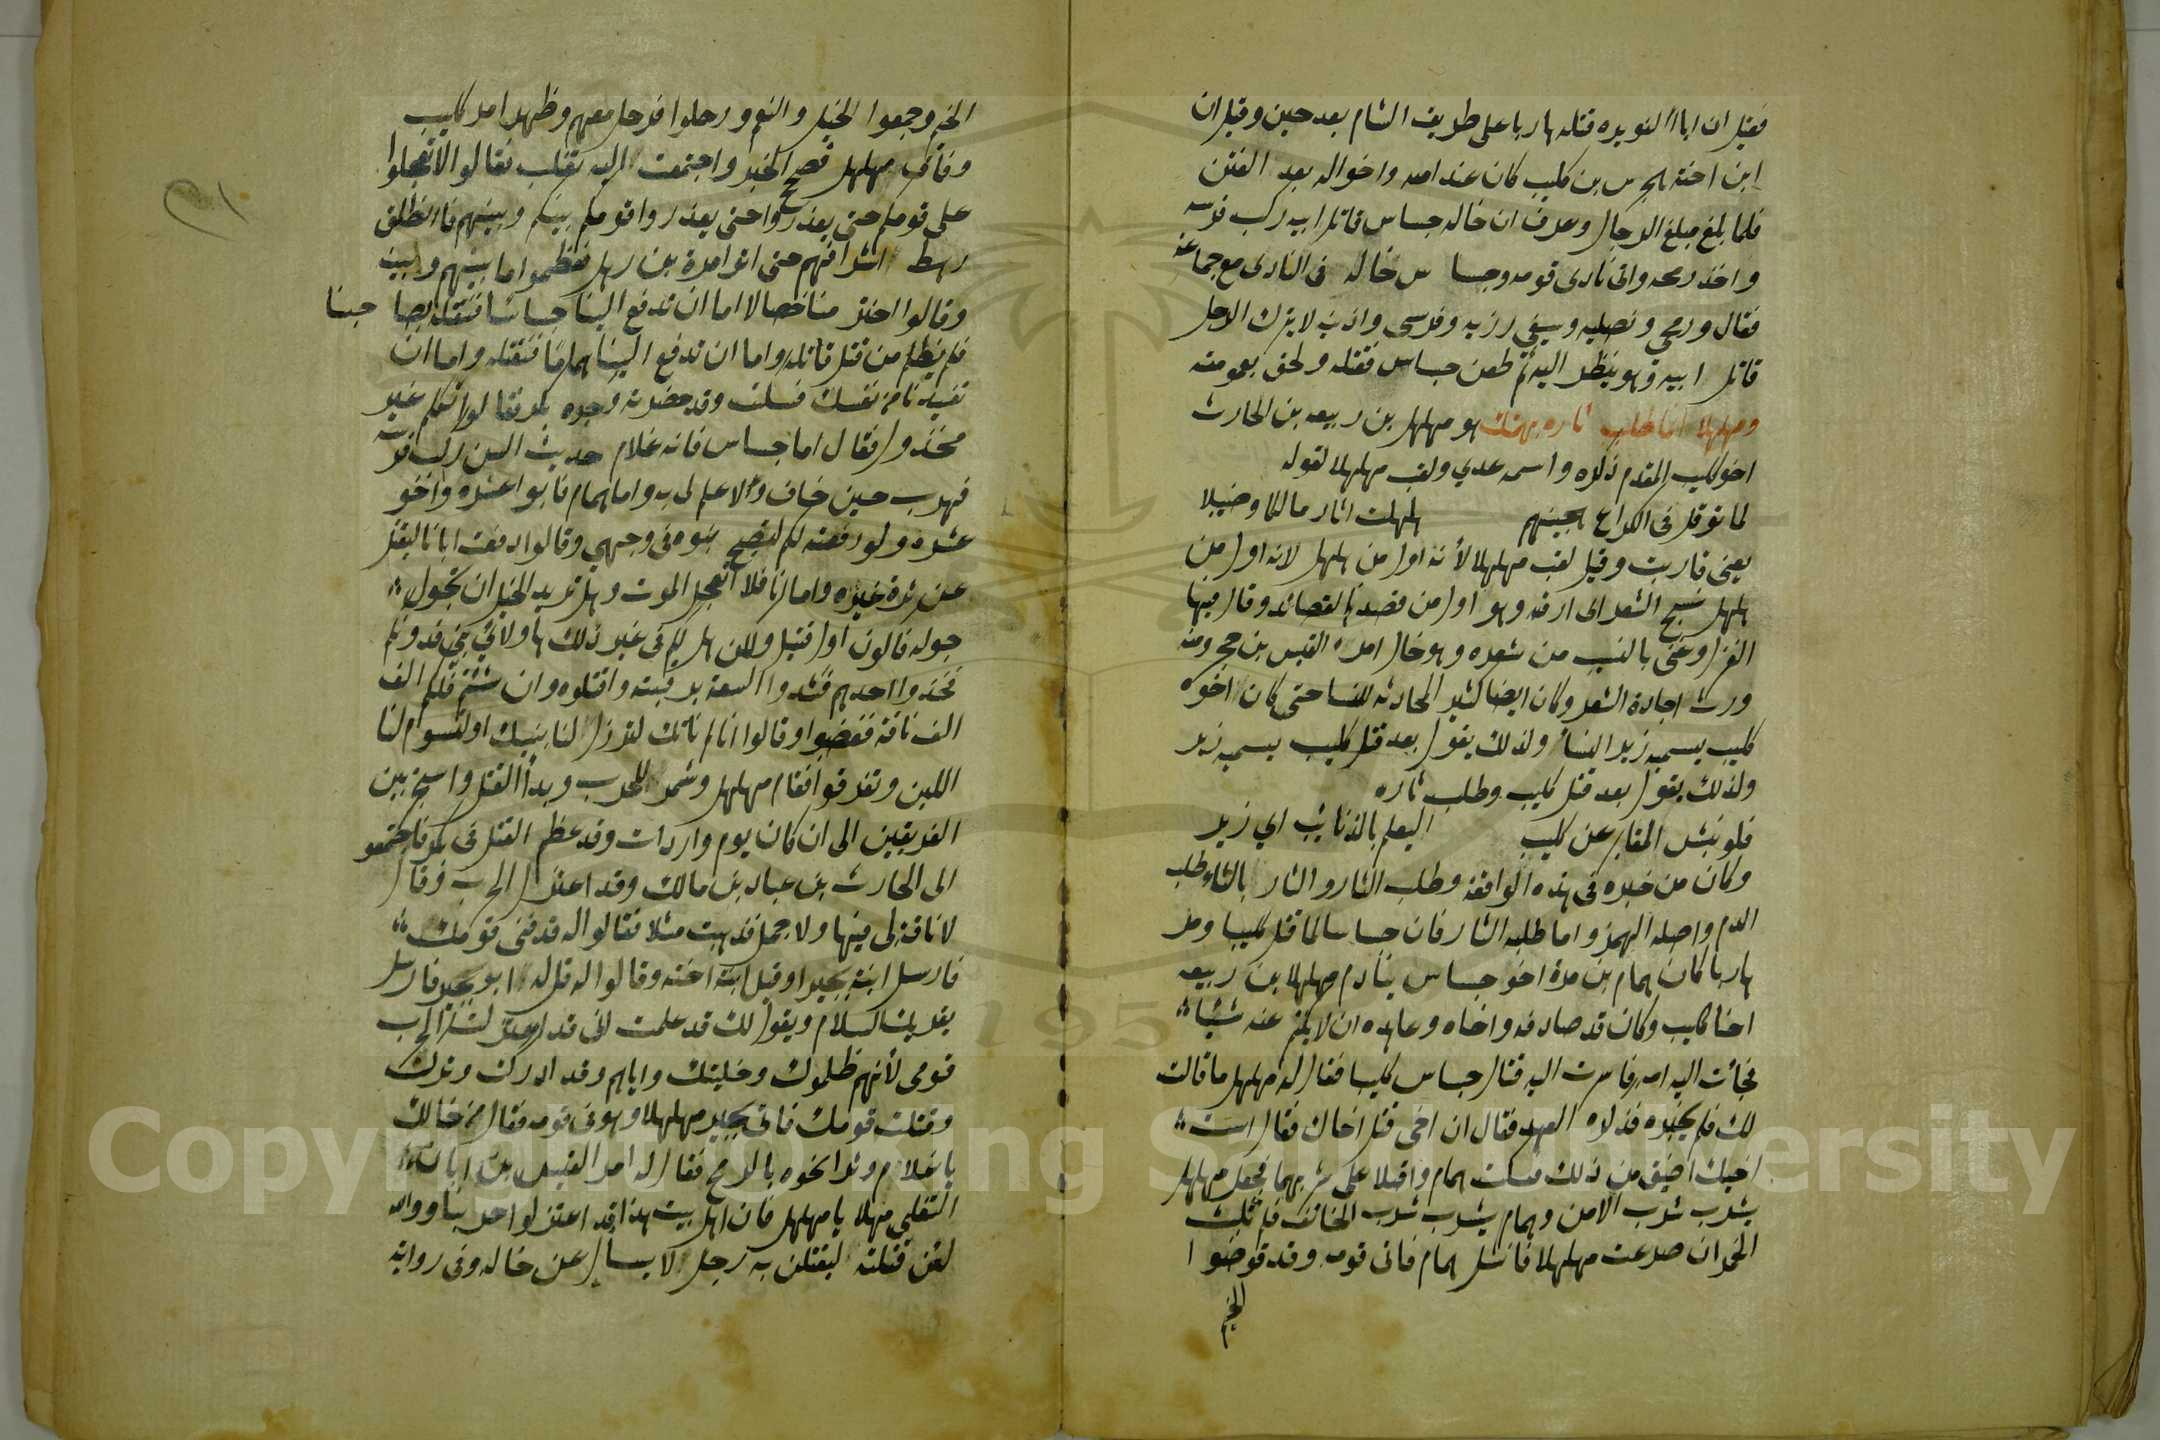 فقيل ان ابا النويره قتله هاربا على طريق الشام بعد حين وقيل ان
ابن اخته الهجرس بن كليب كان عند امه واخواله بعد الفتن
فلما بلغ مبلغ الرجال وعرف ان خاله جساس قاتل ابيه ركب فرسه
واخذ رمحه واتى نادى قومه وجساس خاله فى النادى مع جماعة
فقال ورمحي ونصليه وسيفي وزربه وفرسي واذنيه لا يترك الرجل
قاتل ابيه وهو ينظر اليه ثم طعن جساس فقتله ولحق بعمومته
ومهلهلا انما طلب ثاره بهمتك هو مهلهل بن ربيعه بن الحارث
اخو كليب المقدم ذكره واسمه عدي ولقب مهلهلا لقوله
لما توقل فى الكراع هجينهم هلهلت اثار مالكا وضيلا
يعنى قاربت وقيل لقب مهلهلا لأنه اول من هلهل لانه اول من
هلهل نسج الشعر اى ارقه وهو اول من قصد بالقصائد وقال فيها
الغزل وعنى بالنسيب من شعره وهو خال امرء القيس بن حجر ومنه
ورث اجادة الشعر وكان ايضا كثير المحادثه للنسا حتى كان اخوه
كليب يسميه زير النسا ولذلك يقول بعد قتل كليب يسميه زير
ولذلك يقول بعد قتل كليب وطلب ثاره
فلو نبش المقابر عن كليب اليعلم بالذنائب اي زير
وكان من خبره فى هذه الواقعه وطلب الثار والثار بالثاء طلب
الدم واصله الهمز واما طلبه الثار فان جساسا لما قتل كليبا ومر
هاربا كان همام بن مرة اخو جساس ينادم مهلهلا بن ربيعه
اخا كليب وكان قد صادقه واخاه وعاهده ان لا يكتم عنه شيئا
فجائت اليه امه فاسرت اليه قتال جساس كليبا فقال له مهلهل ما قالت
لك فلم يخبره فذكره العهد فقال ان اخى قتل اخاك فقال است
اخيك اضيق من ذلك فسكت همام واقبلا على شربهما فجعل مهلهل
يشرب شرب الامن وهمام يشرب شرب الخائف فلم تلبث
الخمر ان صرعت مهلهلا فانسل همام فاتى قومه وقد قوضوا
الخيم
الخيم وجمعوا الخيل والنعم ورحلوا فرحل معهم وظهر امر كليب
وفاق مهلهل فصح الخبر واجتمعت اليه تغلب فقالوا لا تعجلوا
على قومكم حتى يعذروا حتى يعذروا قومكم بينكم وبينهم فانطلق
رهط اشرافهم حتى اتوا مرة بن ذهل فعظموا ما بينهم وبينه
وقالوا اختر منا خصالا اما ان تدفع الينا جساسا فنقتله بصاحبنا
فلم يظلم من قتل قاتله واما ان تدفع الينا هماما فنقتله واما ان
تقيدنا من نفسك فسكت وقد حضرته وجوه بكر فقالوا تكلم غير
مخذول فقال اما جساس فانه غلام حديث السن ركب فرسه
فهرب حين خاف ولا علم لى به واما همام فابو عشره واخو
عشره ولو دفعته لكم لتصيح بنوه فى وجهي وقالوا دفعت ابانا ليقتل
عن جريرة غيره واما انا فلا اتعجل الموت وهل تريد الخيل ان تجول
جوله فاكون اول قتيل ولكن هل لكم فى غير ذلك هاولائي بنى فدونكم
فخذوا احدهم فشدوا السعة برقبته واقتلوه وان شئتم فلكم الف
الف ناقة فغضبوا وقالوا انا لم ناتك لترذل لنا بنيك او لتسوم لنا
اللبن وتفرقوا فقام مهلهل وشمر للحرب وبدأ القتل واسج بين
الفريقين الى ان كان يوم واردات وقد عظم القتل فى بكر فاجتمعوا
الى الحارث بن عباد بن مالك وقد اعتزل الحرب وقال
لا ناقة لى فيها ولا جمل فذهبت مثلا فقالوا له قد فنى قومك
فارسل ابنه بجيرا وقيل ابنة اخته وقالوا له قل له ابو بجير فارسل
يقريك السلام ويقول لك قد علمت انى قد اعتزلت الحرب
قومى لأنهم ظلموك وخليتك واياهم وقد ادركت وترك
وقتلت قومك فاتى بجير مهلهلا وهو فى قومه فقال من خالك
يا غلام وثرا نحوه بالرمح فقال له امر القيس بن ابان
التغلبي مهلا يا مهلهل فان اهل بيت هذا قد اعتزلوا حربنا ووالله
لئن قتلته ليقتلن به رجل لا يسال عن خاله وفى روايه